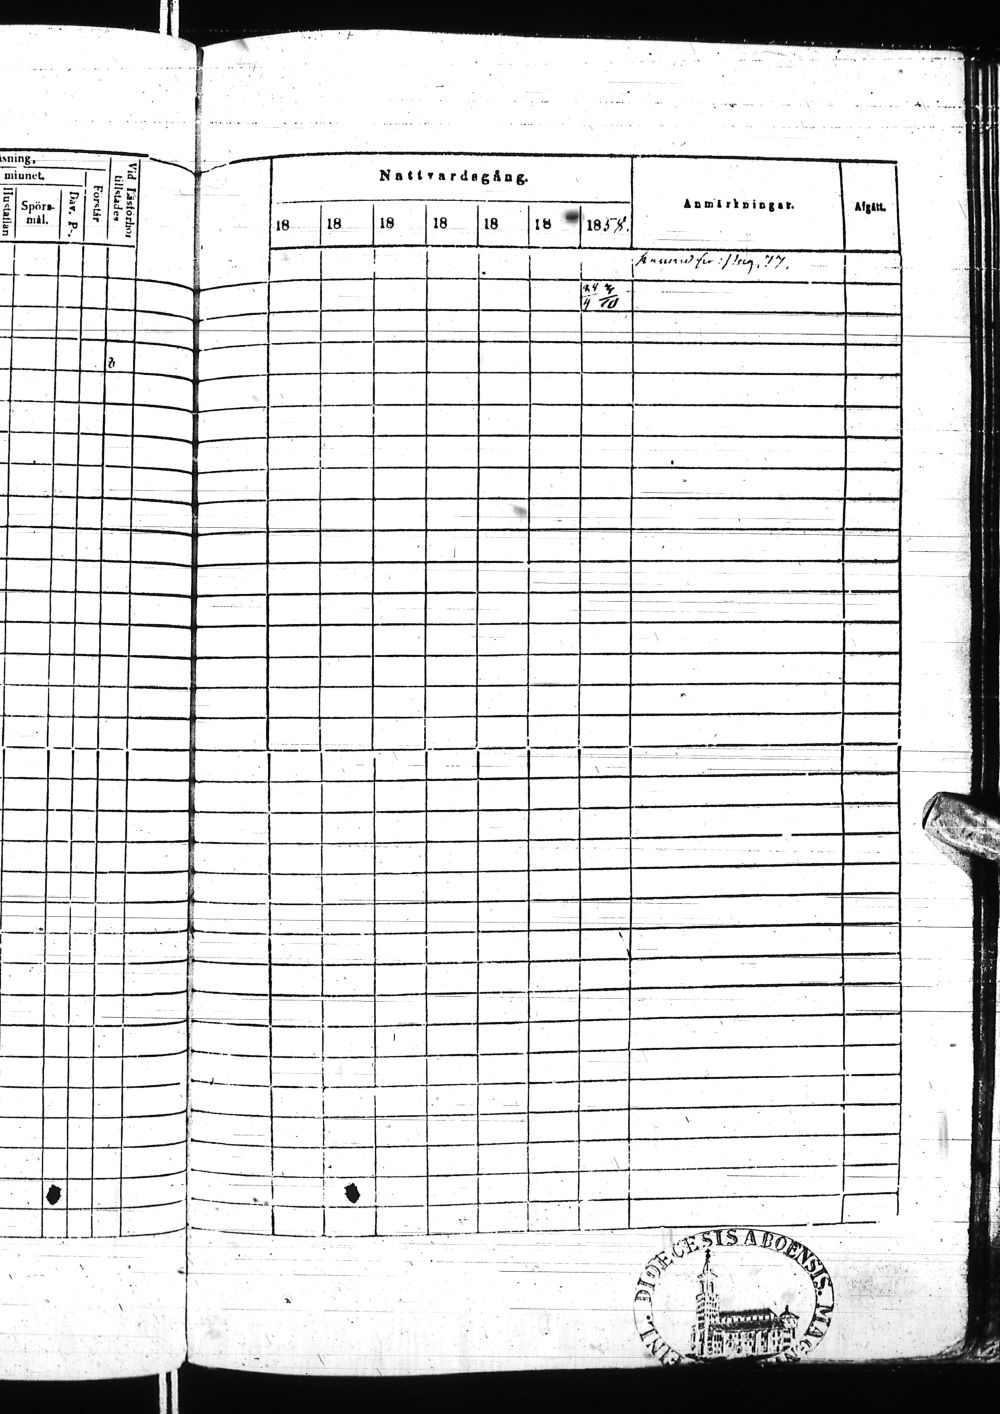 äsning,
minnet.
Hustaflan
Spörs-
mål.
Dav. P.
Förstår
Vid Läsförhör
tillstädes
Nattvardsgång.
Anmärkningar.
Afgått.
18 18 18 18 18 18 1858.
pag. 77.
24
4 10
DIOECESIS ABOENSIS. MAGNI
FINL.